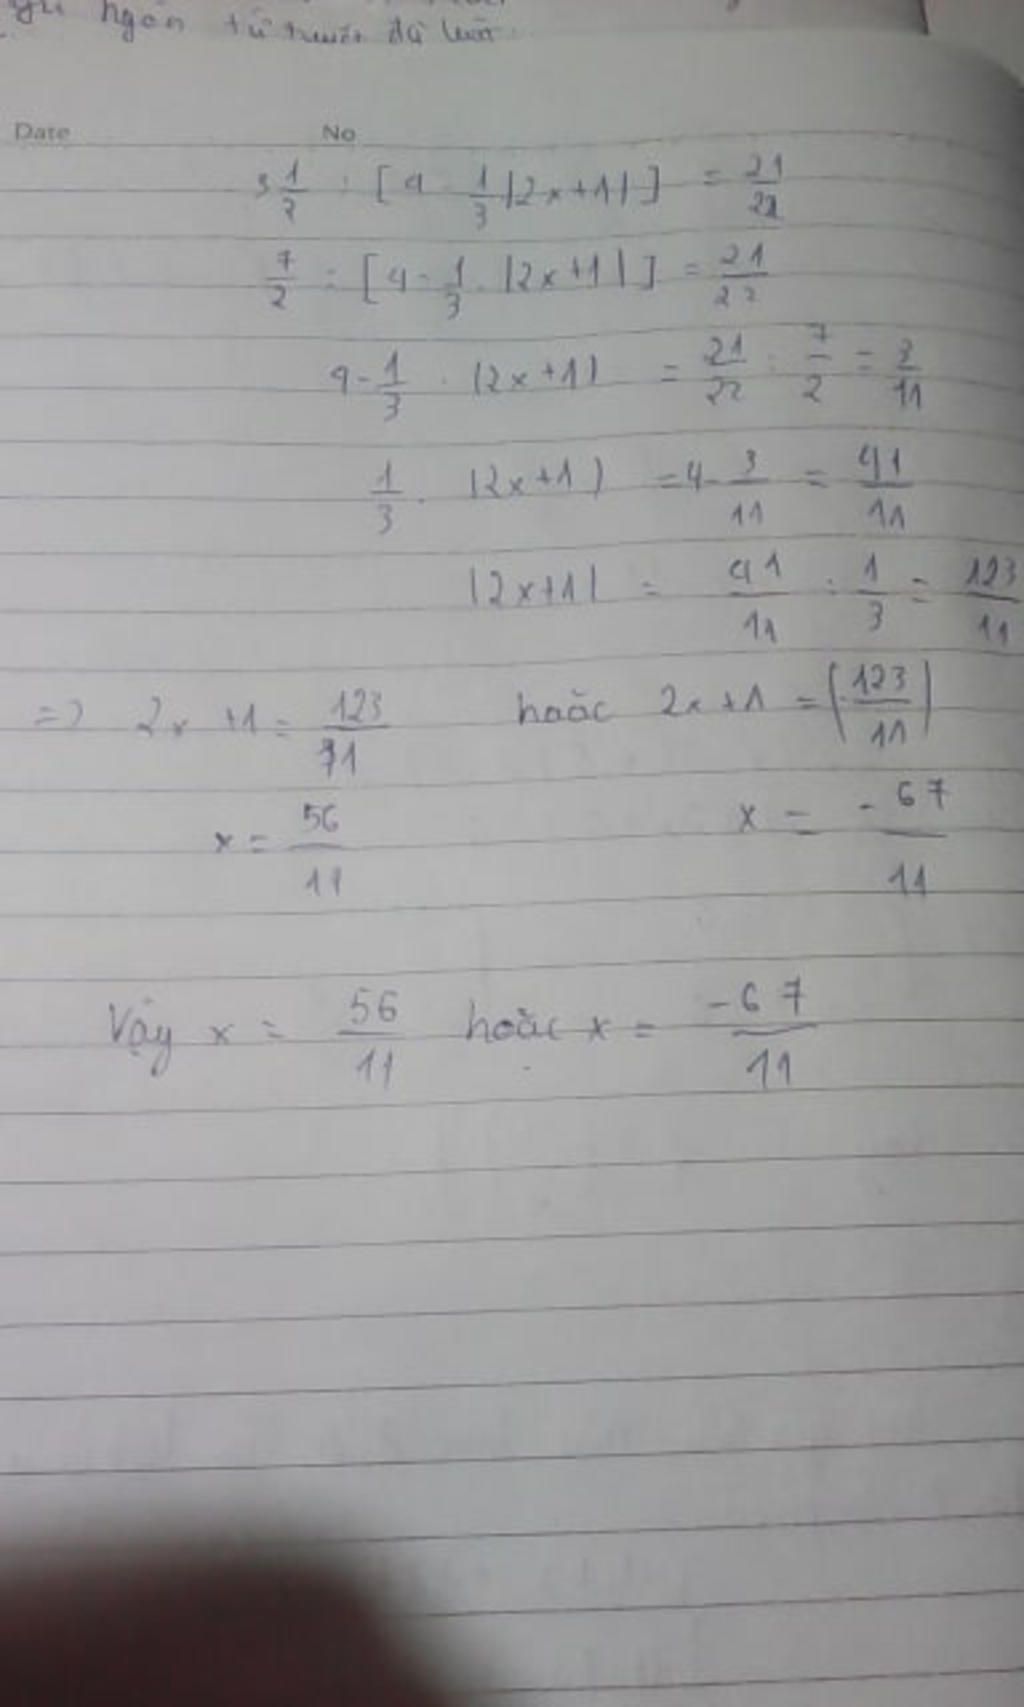 ngôn từ trước
Date No
3 1/2 : [4 - 1/3 |2x+1|] = 21/22
7/2 : [4 - 1/3 . |2x+1|] = 21/22
4 - 1/3 . |2x+1| = 21/22 : 7/2 = 3/11
1/3 . |2x+1| = 4 - 3/11 = 41/11
|2x+1| = 41/11 : 1/3 = 123/11
=> 2x +1 = 123/11 hoặc 2x +1 = (-123/11)
x = 56/11 x = -67/11
Vậy x = 56/11 hoặc x = -67/11